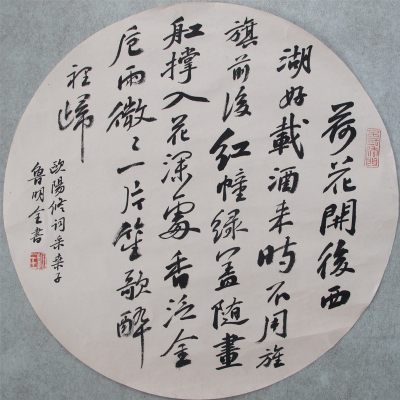 荷花開後西
湖好載酒来時不用旌
旗前後紅幢緑盖随畫
舡撑入花深處香泛金
卮雨微〻一片笙歌醉
裡歸
歐陽修词采桑子
魯明全書